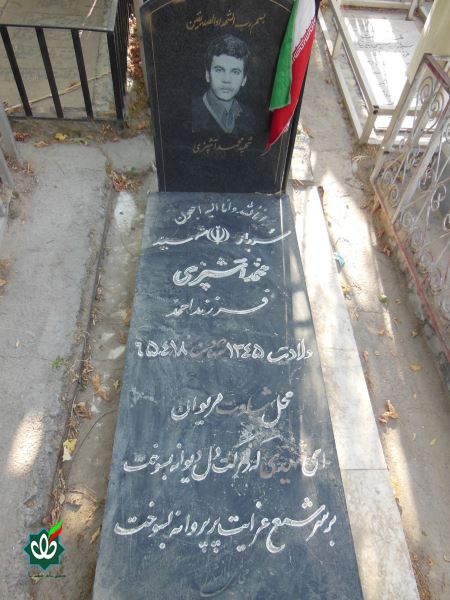 بسم رب الشهداء والصدیقین
شهید محمد آشپزی
انا لله و انا الیه راجعون
سرباز شهید
محمد آشپزی
فرزند احمد
ولادت ۱۳۴۵ شهادت ۶۵،۴،۱۸
محل شهادت مریوان
ای شهیدی که ز مرگت دل دیوانه بسوخت
بر سر شمع عزایت پر پروانه بسوخت